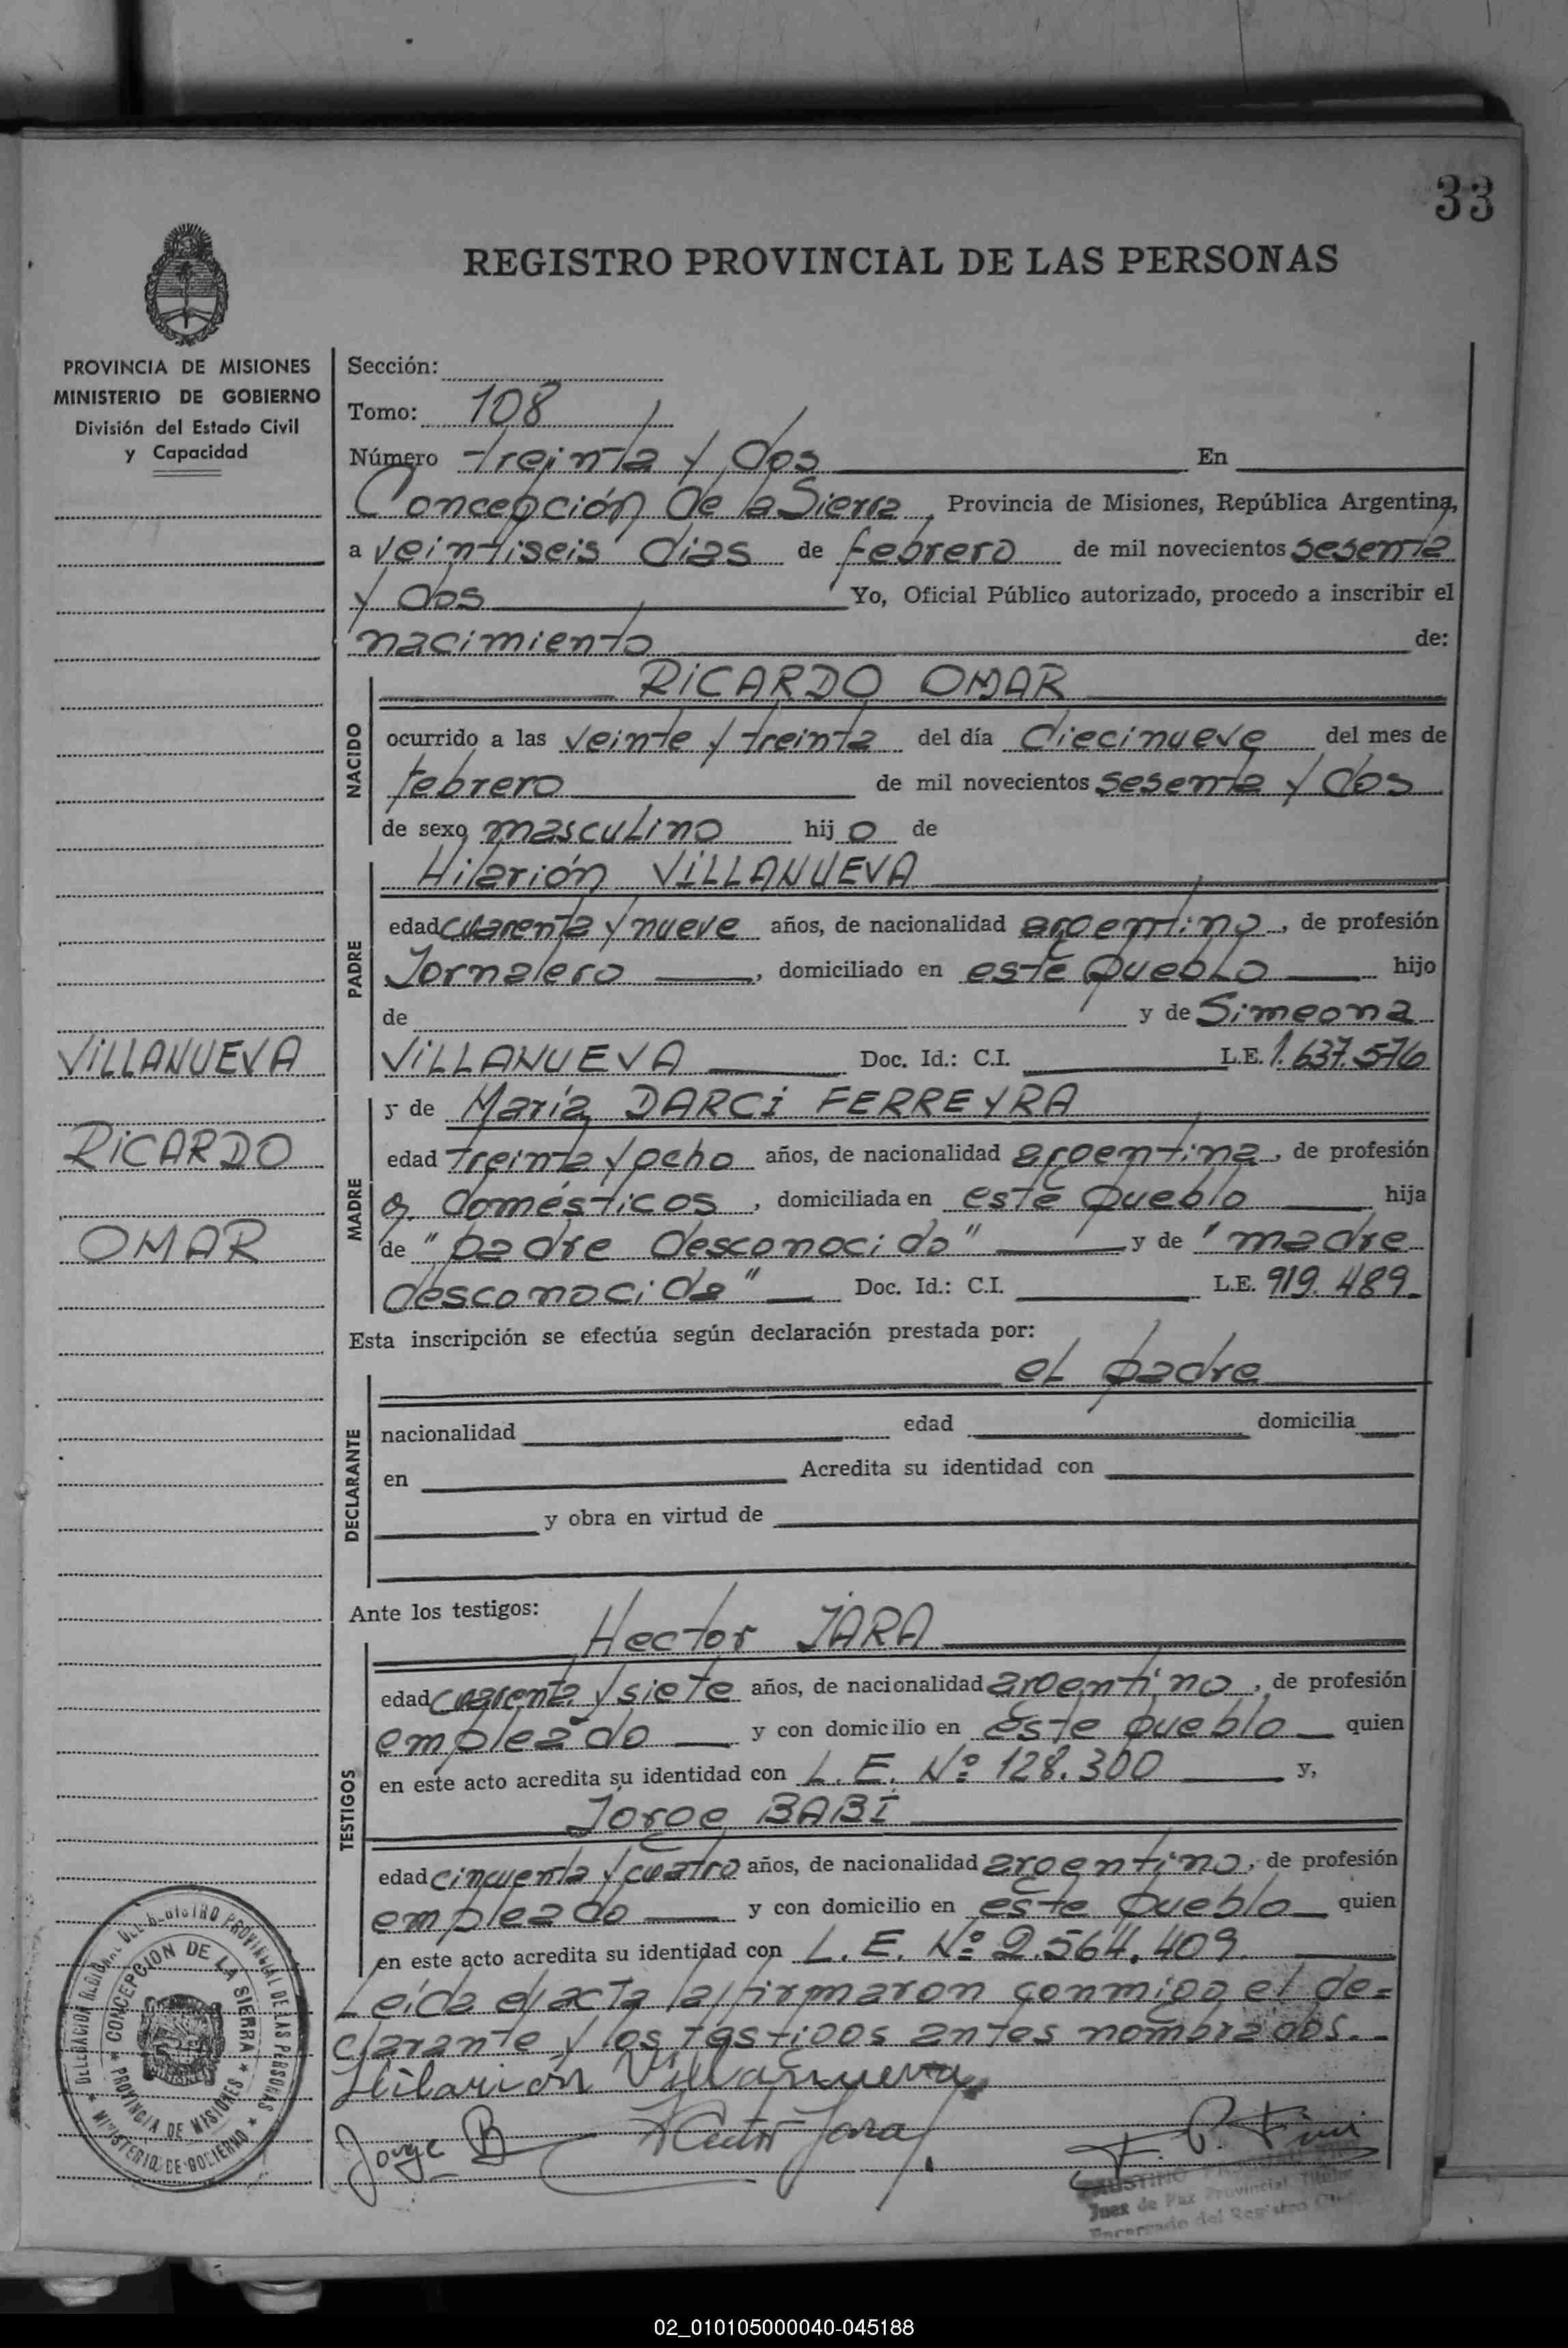 33
REGISTRO PROVINCIAL DE LAS PERSONAS
PROVINCIA DE MISIONES
MINISTERIO DE GOBIERNO
División del Estado Civil
y Capacidad
Sección:
Tomo: 108
Número treinta y dos En
Concepción de la Sierra, Provincia de Misiones, República Argentina,
a veintiseis dias de febrero de mil novecientos sesenta
y dos Yo, Oficial Público autorizado, procedo a inscribir el
nacimiento de:
NACIDO
RICARDO OMAR
ocurrido a las veinte y treinta del día diecinueve del mes de
febrero de mil novecientos sesenta y dos
de sexo masculino hijo de
PADRE
Hilarión VILLANUEVA
edad cuarenta y nueve años, de nacionalidad argentino, de profesión
Jornalero, domiciliado en este pueblo hijo
de y de Simeona
VILLANUEVA Doc. Id.: C.I. L.E. 1.637.576
MADRE
y de María DARCI FERREYRA
edad treinta y ocho años, de nacionalidad argentina, de profesión
q. domésticos, domiciliada en este pueblo hija
de "padre desconocido" y de "madre
desconocida" Doc. Id.: C.I. L.E. 919.489
VILLANUEVA
RICARDO
OMAR
Esta inscripción se efectúa según declaración prestada por:
DECLARANTE
el padre
nacionalidad edad domicilia
en Acredita su identidad con
y obra en virtud de
Ante los testigos:
TESTIGOS
Hector JARA
edad cuarenta y siete años, de nacionalidad argentino, de profesión
empleado y con domicilio en este pueblo quien
en este acto acredita su identidad con L. E. Nº 128.300 y,
Jorge BABI
edad cincuenta y cuatro años, de nacionalidad argentino, de profesión
empleado y con domicilio en este pueblo quien
en este acto acredita su identidad con L. E. Nº 2.564.409.
Leída el acta la firmaron conmigo el de=
clarante y los testigos antes nombrados.
Hilarion Villanueva
Jorge B Hector Jara F. P. Fini
FAUSTINO
Juez de Paz Provincial Titular
Encargado del Registro
DELEGACION REGIONAL DEL REGISTRO PROVINCIAL DE LAS PERSONAS
MINISTERIO DE GOBIERNO
CONCEPCION DE LA SIERRA
PROVINCIA DE MISIONES
02_010105000040-045188